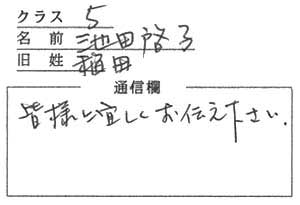 クラス 5
名前 池田啓子
旧姓 稲田
通信欄
皆様に宜しくお伝え下さい.